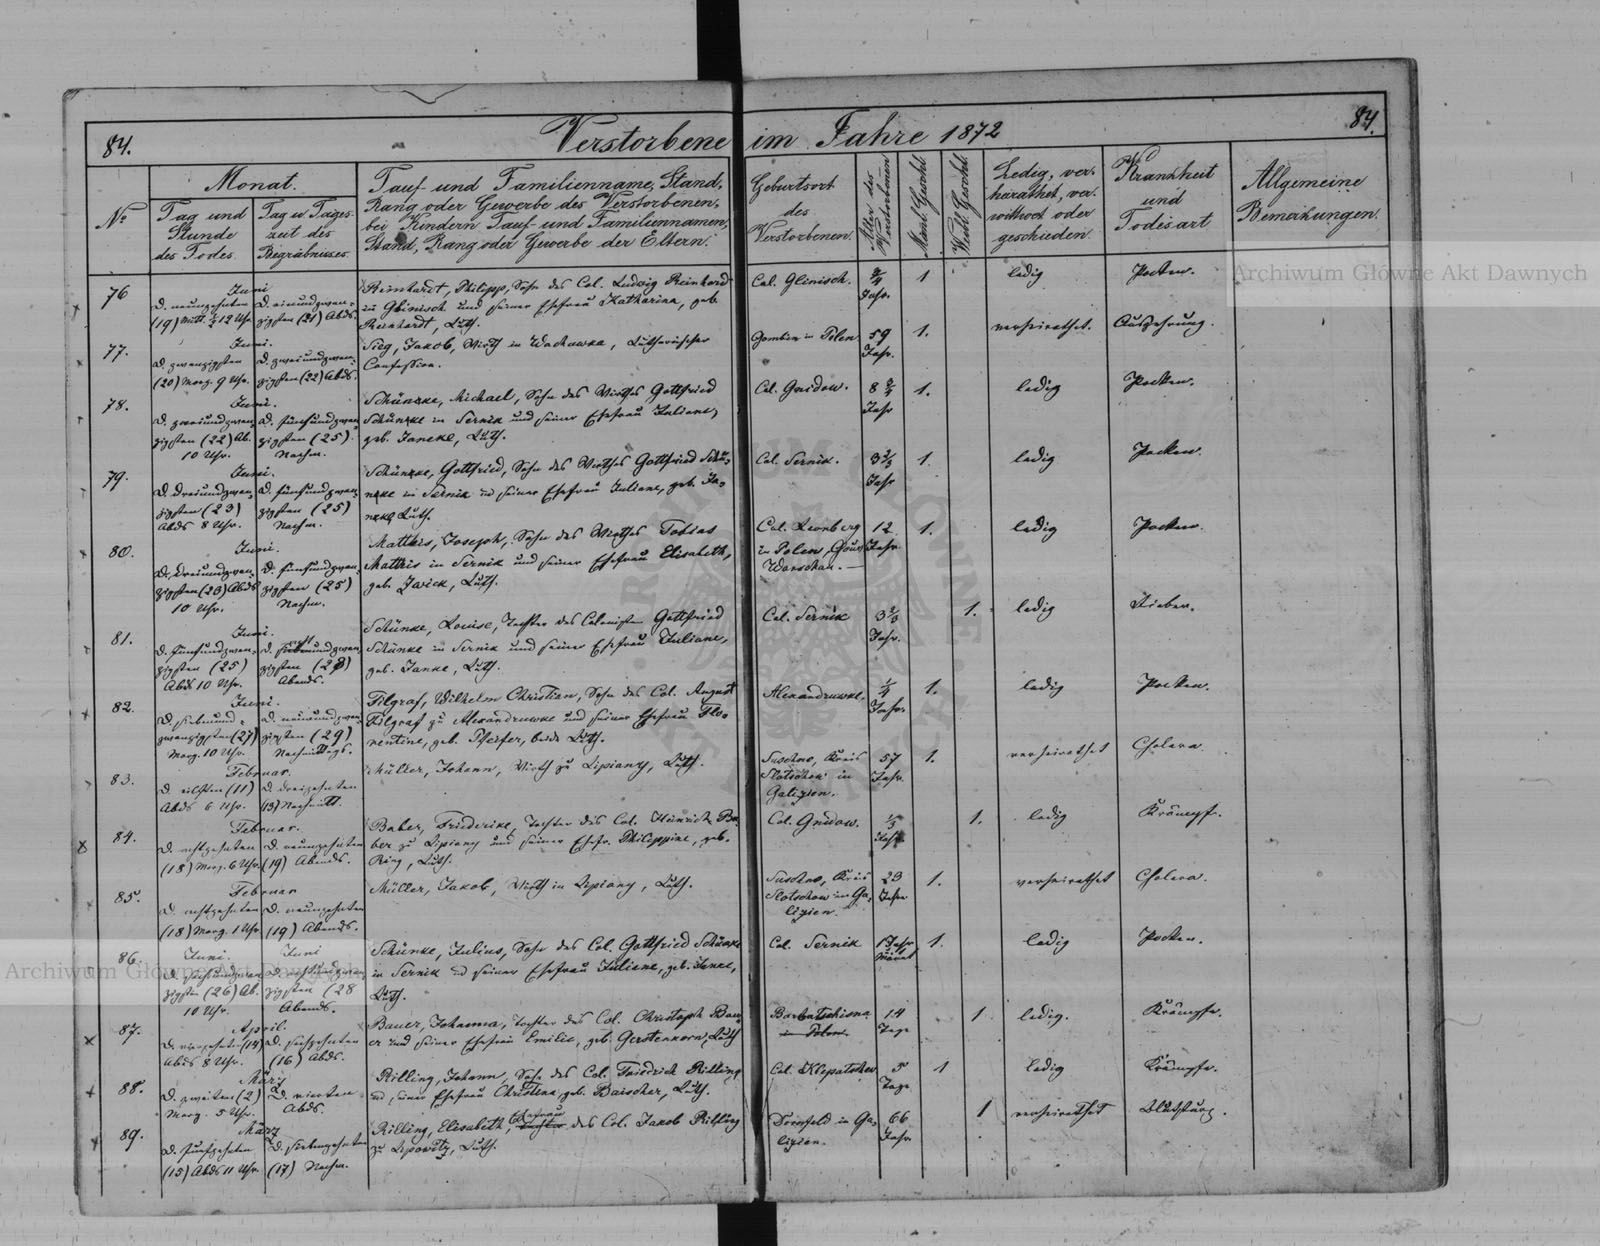 84.
Verstorbene im Jahre 1872
84.
№
Monat.
Tag und
Stunde
des Todes.
Tag u. Tages-
zeit des
Begräbnisses.
Tauf- und Familienname, Stand,
Rang oder Gewerbe des Verstorbenen,
bei Kindern Tauf- und Familiennamen,
Stand, Rang oder Gewerbe der Eltern.
Geburtsort
des
Verstorbenen.
Alter des
Verstorbenen
Männl. Geschl.
Weibl. Geschl.
Ledig, ver-
heirathet, ver-
wittwet oder
geschieden.
Krankheit
und
Todesart
Allgemeine
Bemerkungen.
76
Juni
D. neunzehnten
(19) Mitt. ½ 12 Uhr
D. einundzwan-
zigsten (21) Abds.
Reinhardt, Philipp, Sohn des Col. Ludwig Reinhard
in Glinisch und seiner Ehefrau Katharina, geb.
Reinhardt, Luth.
Col. Glinisch.
¾
Jahr.
1
ledig
Pocken.
77.
Juni.
D. zwanzigsten
(20) Morg. 9 Uhr.
D. zweiundzwan-
zigsten (22) Abds.
Sieg, Jakob, Wirth in Wachawka, Lutherischer
Confession.
Gombin in Polen
59
Jahr.
1.
verheirathet.
Auszehrung.
78.
Juni.
D. zweiundzwan-
zigsten (22) Ab.
10 Uhr.
D. fünfundzwan-
zigsten (25).
Nachm.
Schünke, Michael, Sohn des Wirthes Gottfried
Schünke in Sernik und seiner Ehefrau Juliane,
geb. Jancke, Luth.
Col. Gnidow.
8 ¾
Jahr
1.
ledig
Pocken.
79.
Juni.
D. dreiundzwan-
zigsten (23)
Abds 8 Uhr.
D. fünfundzwan-
zigsten (25)
Nachm.
Schünke, Gottfried, Sohn des Wirthes Gottfried Schü-
nke in Sernik u seiner Ehefrau Juliane, geb. Ja-
nke, Luth.
Col. Sernik.
3⅔
Jahr
1.
ledig
Pocken.
80.
Juni.
D. dreiundzwan-
zigsten (23) Abds
10 Uhr.
D. fünfundzwan-
zigsten (25)
Nachm.
Matthis, Joseph, Sohn des Wirthes Tobias
Matthis in Sernik und seiner Ehefrau Elisabeth,
geb. Zwick, Luth.
Col. Leonberg
in Polen, Gouv.
Warschau. —
12
Jahr
1.
ledig
Pocken
81.
Juni.
D. fünfundzwan-
zigsten (25)
Abds 10 Uhr.
zigsten (28)
Abends.
Schünke, Louise, Tochter des Colonisten Gottfried
Schünke in Sernik und seiner Ehefrau Juliane,
geb. Janke, Luth.
Col. Sernik
3⅔
Jahr.
1.
ledig
Fieber.
82.
Juni.
D. siebenund-
zwanzigsten (27)
Morg. 10 Uhr.
D. neunundzwan-
zigsten (29)
Nachmittags.
Filgraf, Wilhelm Christian, Sohn des Col. August
Filgraf zu Alexandruwke und seiner Ehefrau Flo-
rentine, geb. Pfeifer, beide Luth.
Alexandruwke.
¼
Jahr.
1.
ledig
Pocken.
83.
Februar.
D. eilften (11)
Abds 6 Uhr.
D. dreizehnten
(13) Nachmitt.
Müller, Johann, Wirth zu Lipiany, Luth.
Suschno, Kreis
Slotschow in
Galizien.
57
Jahr.
1.
verheirathet
Cholera.
84.
Februar.
D. achtzehnten
(18) Morg. 6 Uhr.
D. neunzehnten
(19) Abends.
Baber, Friederike, Tochter des Col. Heinrich Ba-
ber zu Lipiany und seiner Ehefr. Philippine, geb.
Ring, Luth.
Col. Gnidow.
Jahr
1.
ledig
Krämpf.
85.
Februar
D. achtzehnten
(18) Morg. 1 Uhr
D. neunzehnten
(19) Abends.
Müller, Jakob, Wirth in Lipiany, Luth.
Suschno, Kreis
Slotschow in Ga-
lizien.
23
Jahr
1.
verheirathet
Cholera.
86.
Juni.
zigsten (26) Ab.
10 Uhr.
Juni
zigsten (28
Abends.
Schünke, Julius, Sohn des Col. Gottfried Schünke
in Sernik u seiner Ehefrau Juliane, geb. Janke,
Luth.
Col. Sernik
1 Jahr
Monat
1.
ledig
Pocken.
87.
April.
D. vierzehnten (14)
Abds 8 Uhr.
D. sechzehnten
(16) Abds.
Bauer, Johanna, Tochter des Col. Christoph Bau-
er und seiner Ehefrau Emilie, geb. Gerstenkorn, Luth
in Polen.
14
Tage
1
ledig.
Krämpfe.
88.
März
D. zweiten (2)
Morg. 5 Uhr.
D. vierten
Abds.
Rilling, Johann, Sohn des Col. Friedrich Rilling
u seiner Ehefrau Christina geb. Baischer, Luth.
Col. Klopatschew
5
Tage
1
ledig
Krämpfe.
89.
März
D. fünfzehnten
(15) Abds 11 Uhr.
D. siebenzehnten
(17) Nachm.
Rilling, Elisabeth, Ehefrau des Col. Jakob Rilling
zu Lipowitz, Luth.
Dornfeld in Ga-
lizien.
66
Jahr
1
verheirathet
Blutsturz.
Archiwum Główne Akt Dawnych
Archiwum Główne Akt Dawnych